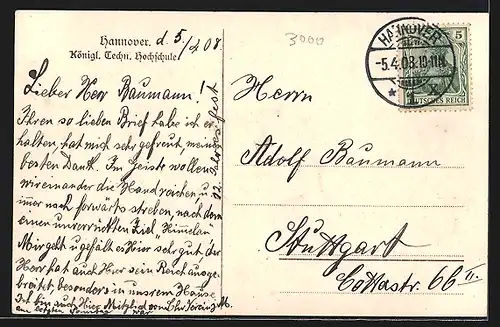 Hannover. d. 5/4 08.
Königl. Techn. Hochschule
Lieber Herr Baumann!
Ihren so lieben Brief habe ich er-
halten, hat mich sehr gefreut, meinen
besten Dank. Im Geiste wollen
wir einander die Hand reichen u.
immer noch forwärts streben, nach dem
einen unverrückten Ziel, "Himelan"
Mir geht u gefält es Hier sehr gut. Der
Herr hat auch Hier sein Reich ausge-
breitet, besonders in unsrem Hause
Ich bin auch Hier Mitglied vom
am letzten Sonntag war
fest
3000
HANNOVER
-5.4.08.
X.
5
DEUTSCHES REICH
Herrn
Adolf Baumann
Stuttgart
Cottastr. 66 II.